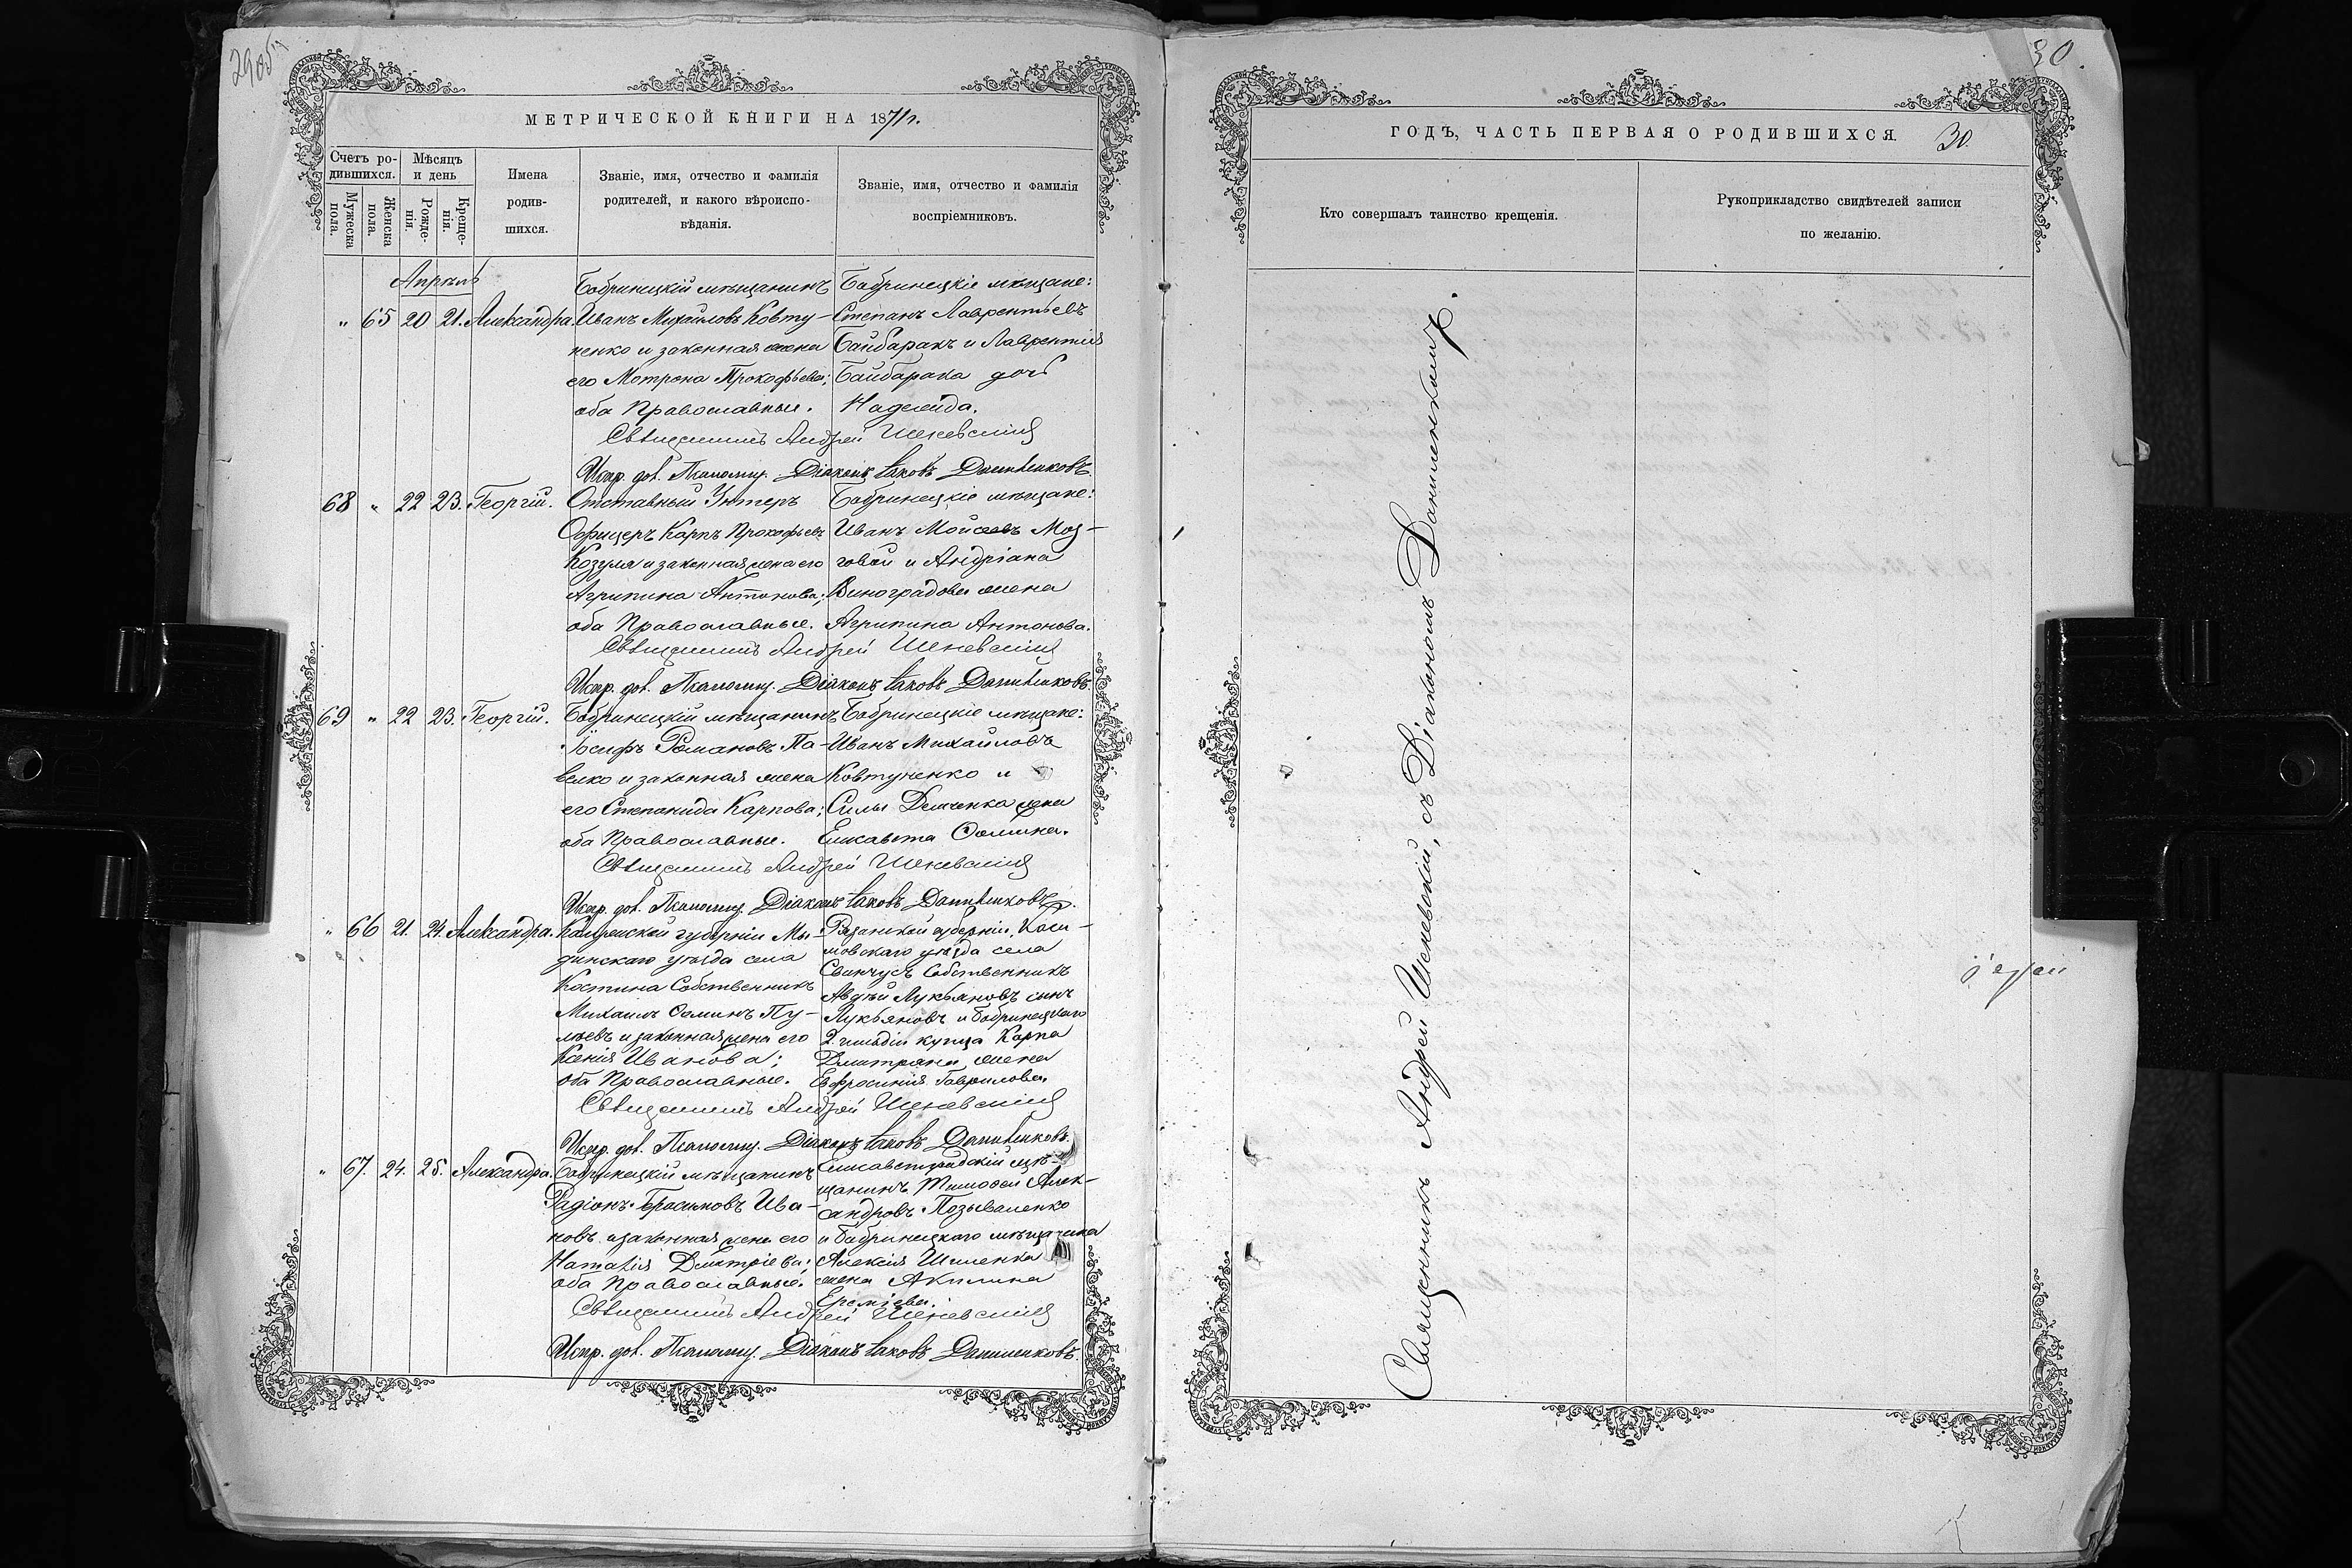 29об
МЕТРИЧЕСКОЙ КНИГИ НА 1871г.
Счетъ ро-
дившихся.
Мужеска
пола.
Женска
пола.
Мѣсяцъ
и день
Рожде-
нія.
Креще-
нія.
Имена
родив-
шихся.
Званіе, имя, отчество и фамилія
родителей, и какого вѣроиспо-
вѣданія.
Званіе, имя, отчество и фамилія
воспріемниковъ.
Апрѣль
" 65 20 21. Александра.
Бобринецкій мѣщанинъ
Иванъ Михайловъ Ковту-
ненко и законная жена
его Мотрона Прокофьева;
оба Православные.
Бобринецкіе мѣщане:
Степанъ Лаврентьевъ
Байбаракъ и Лаврентія
Байбарака дочь
Надежда.
Священникъ Андрей Шеневскій
Испр. дол. Псаломщ. Діаконъ Іаковъ Даниленковъ.
68 " 22 23. Георгій.
Отставный Унтеръ
Офицеръ Карпъ Прокофьевъ
Козуля и законная жена его
Агрипина Антонова;
оба Православные.
Бобринецкіе мѣщане:
Иванъ Мойсеевъ Моз-
говой и Андріана
Виноградова жена
Агрипина Антонова.
Священникъ Андрей Шеневскій
Испр. дол. Псаломщ. Діаконъ Іаковъ Даниленковъ.
69 " 22 23. Георгій.
Бобринецкій мѣщанинъ
Іосифъ Романовъ Па-
велко и законная жена
его Степанида Карпова;
оба Православные.
Бобринецкіе мѣщане:
Иванъ Михайловъ
Ковтуненко и
Силы Демченка жена
Елисавета Ѳомина.
Священникъ Андрей Шеневскій
Испр. дол. Псаломщ. Діаконъ Іаковъ Даниленковъ.
" 66 21. 24. Александра.
Калужской губерніи Мы-
динскаго уѣзда села
Костина Собственникъ
Михаилъ Ѳоминъ Гу-
и законная жена его
Ксенія Иванова;
оба Православные.
Рязанской губерніи, Каси-
мовскаго уѣзда села
Свинчусъ Собственникъ
Авдѣй Лукьяновъ сынъ
Лукьяновъ и Бобринецкаго
2. гильдіи купца Карпа
Дмитряна жена
Евфросинія Гаврилова.
Священникъ Андрей Шеневскій
Испр. дол. Псаломщ. Діаконъ Іаковъ Даниленковъ.
" 67. 24. 25. Александра.
Бобринецкій мѣщанинъ
Радіонъ Герасимовъ Ива-
новъ и законная жена его
Наталія Дмитріева;
оба Православные.
Елисаветградскій мѣ-
щанинъ Тимоѳей Алек-
сандровъ Позываленко
и Бобринецкаго мѣщанина
Алексія Шиленка
жена Акилина
Еремѣева.
Священникъ Андрей Шеневскій
Испр. дол. Псаломщ. Діаконъ Іаковъ Даниленковъ.
30.
ГОДЪ, ЧАСТЬ ПЕРВАЯ О РОДИВШИХСЯ. 30.
Кто совершалъ таинство крещенія.
Рукоприкладство свидѣтелей записи
по желанію.
Священникъ Андрей Шеневскій, съ Діакономъ Даниленкомъ.